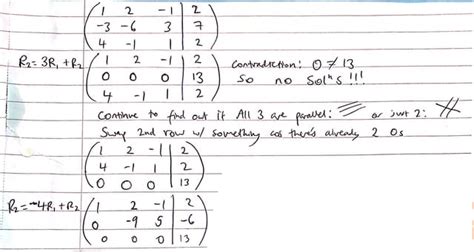 ( 1 2 -1 | 2 )
( -3 -6 3 | 7 )
( 4 -1 1 | 2 )
R₂=3R₁+R₂ ( 1 2 -1 | 2 ) Contradiction: 0 ≠ 13
( 0 0 0 | 13 ) So no Solⁿs !!!
( 4 -1 1 | 2 )
Continue to find out if All 3 are parallel: or just 2:
Swap 2nd row w/ something cos there's already 2 0s
( 1 2 -1 | 2 )
( 4 -1 1 | 2 )
( 0 0 0 | 13 )
R₂=-4R₁+R₂ ( 1 2 -1 | 2 )
( 0 -9 5 | -6 )
( 0 0 0 | 13 )